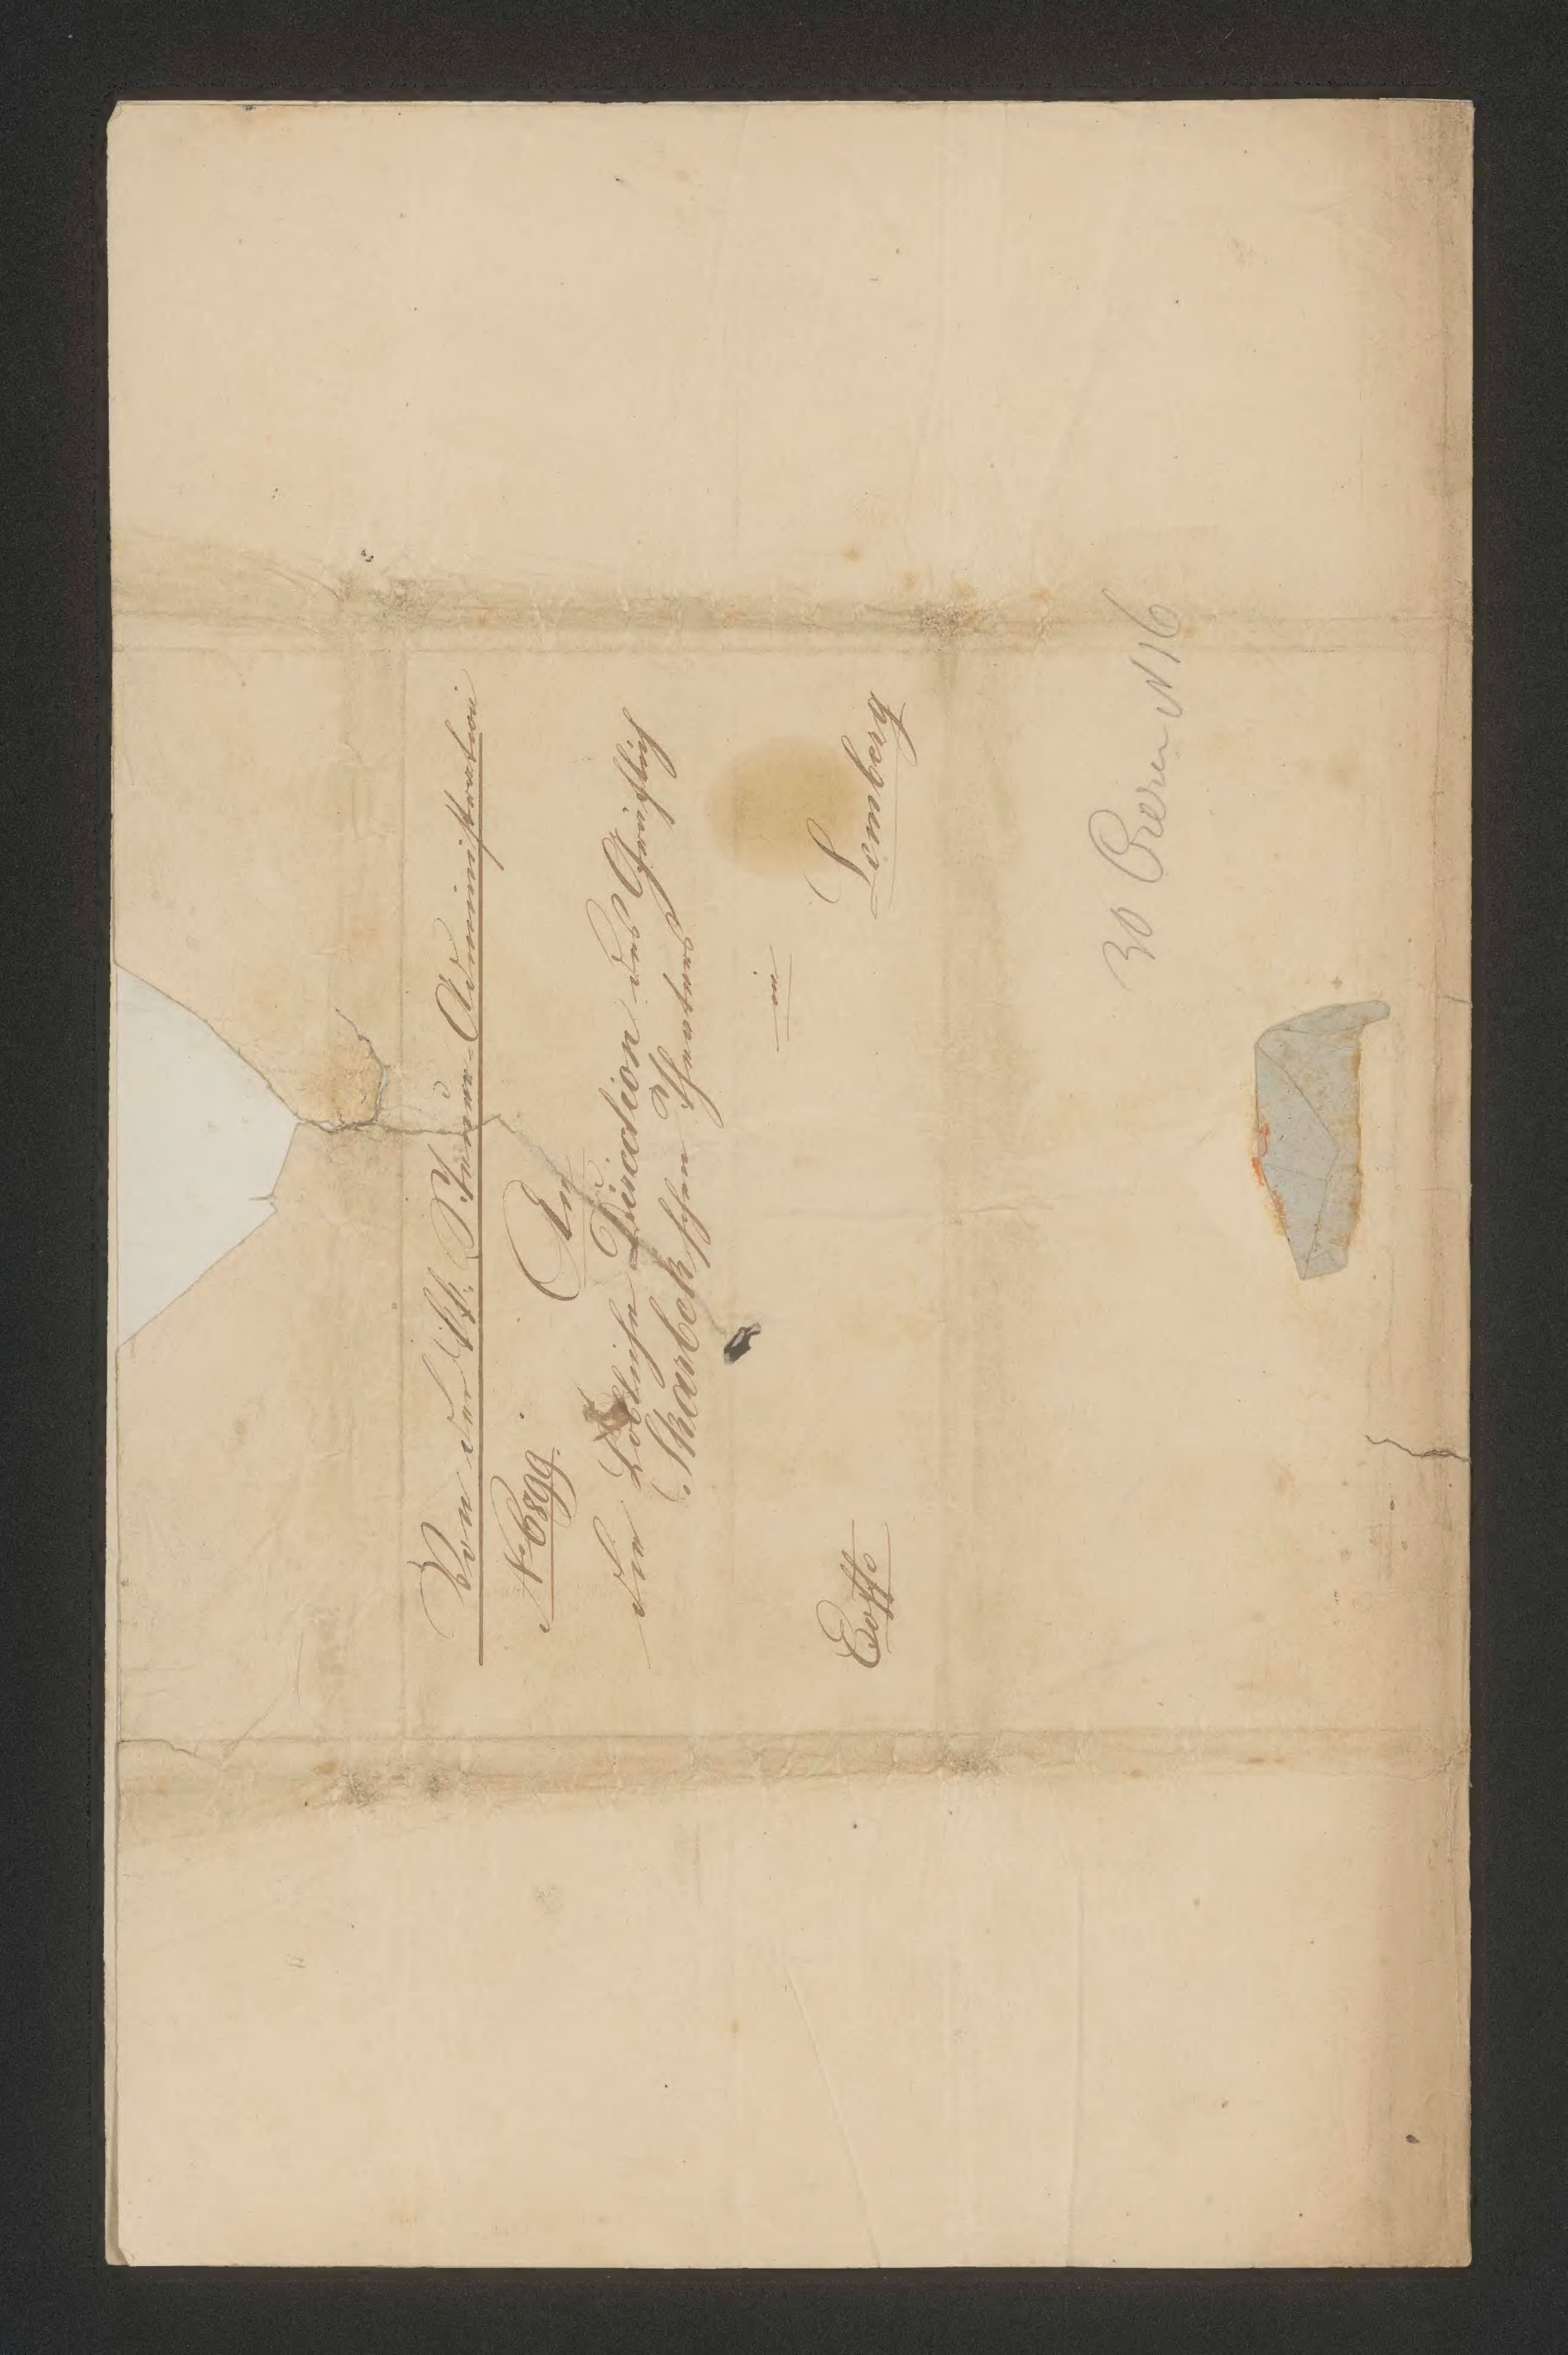 Von der k.k. Steuer-Administration
N. 6899.
An
die Löbliche Direction des Gräflich
Skarbekschen Theaters
in
Lemberg
Exoffo
30 Czerw N 16